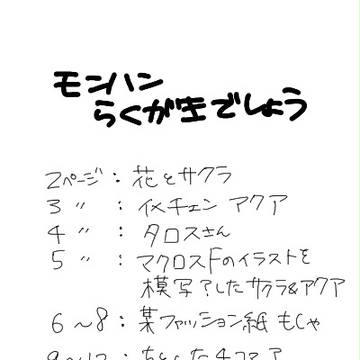 モンハン
らくがきでしょう
2ページ：花とサクラ
3 〃 ：イメチェン アクア
4 〃 ：タロスさん
5 〃 ：マクロスFのイラストを
模写？したサクラ&アクア
6～8：某ファッション紙 もしゃ